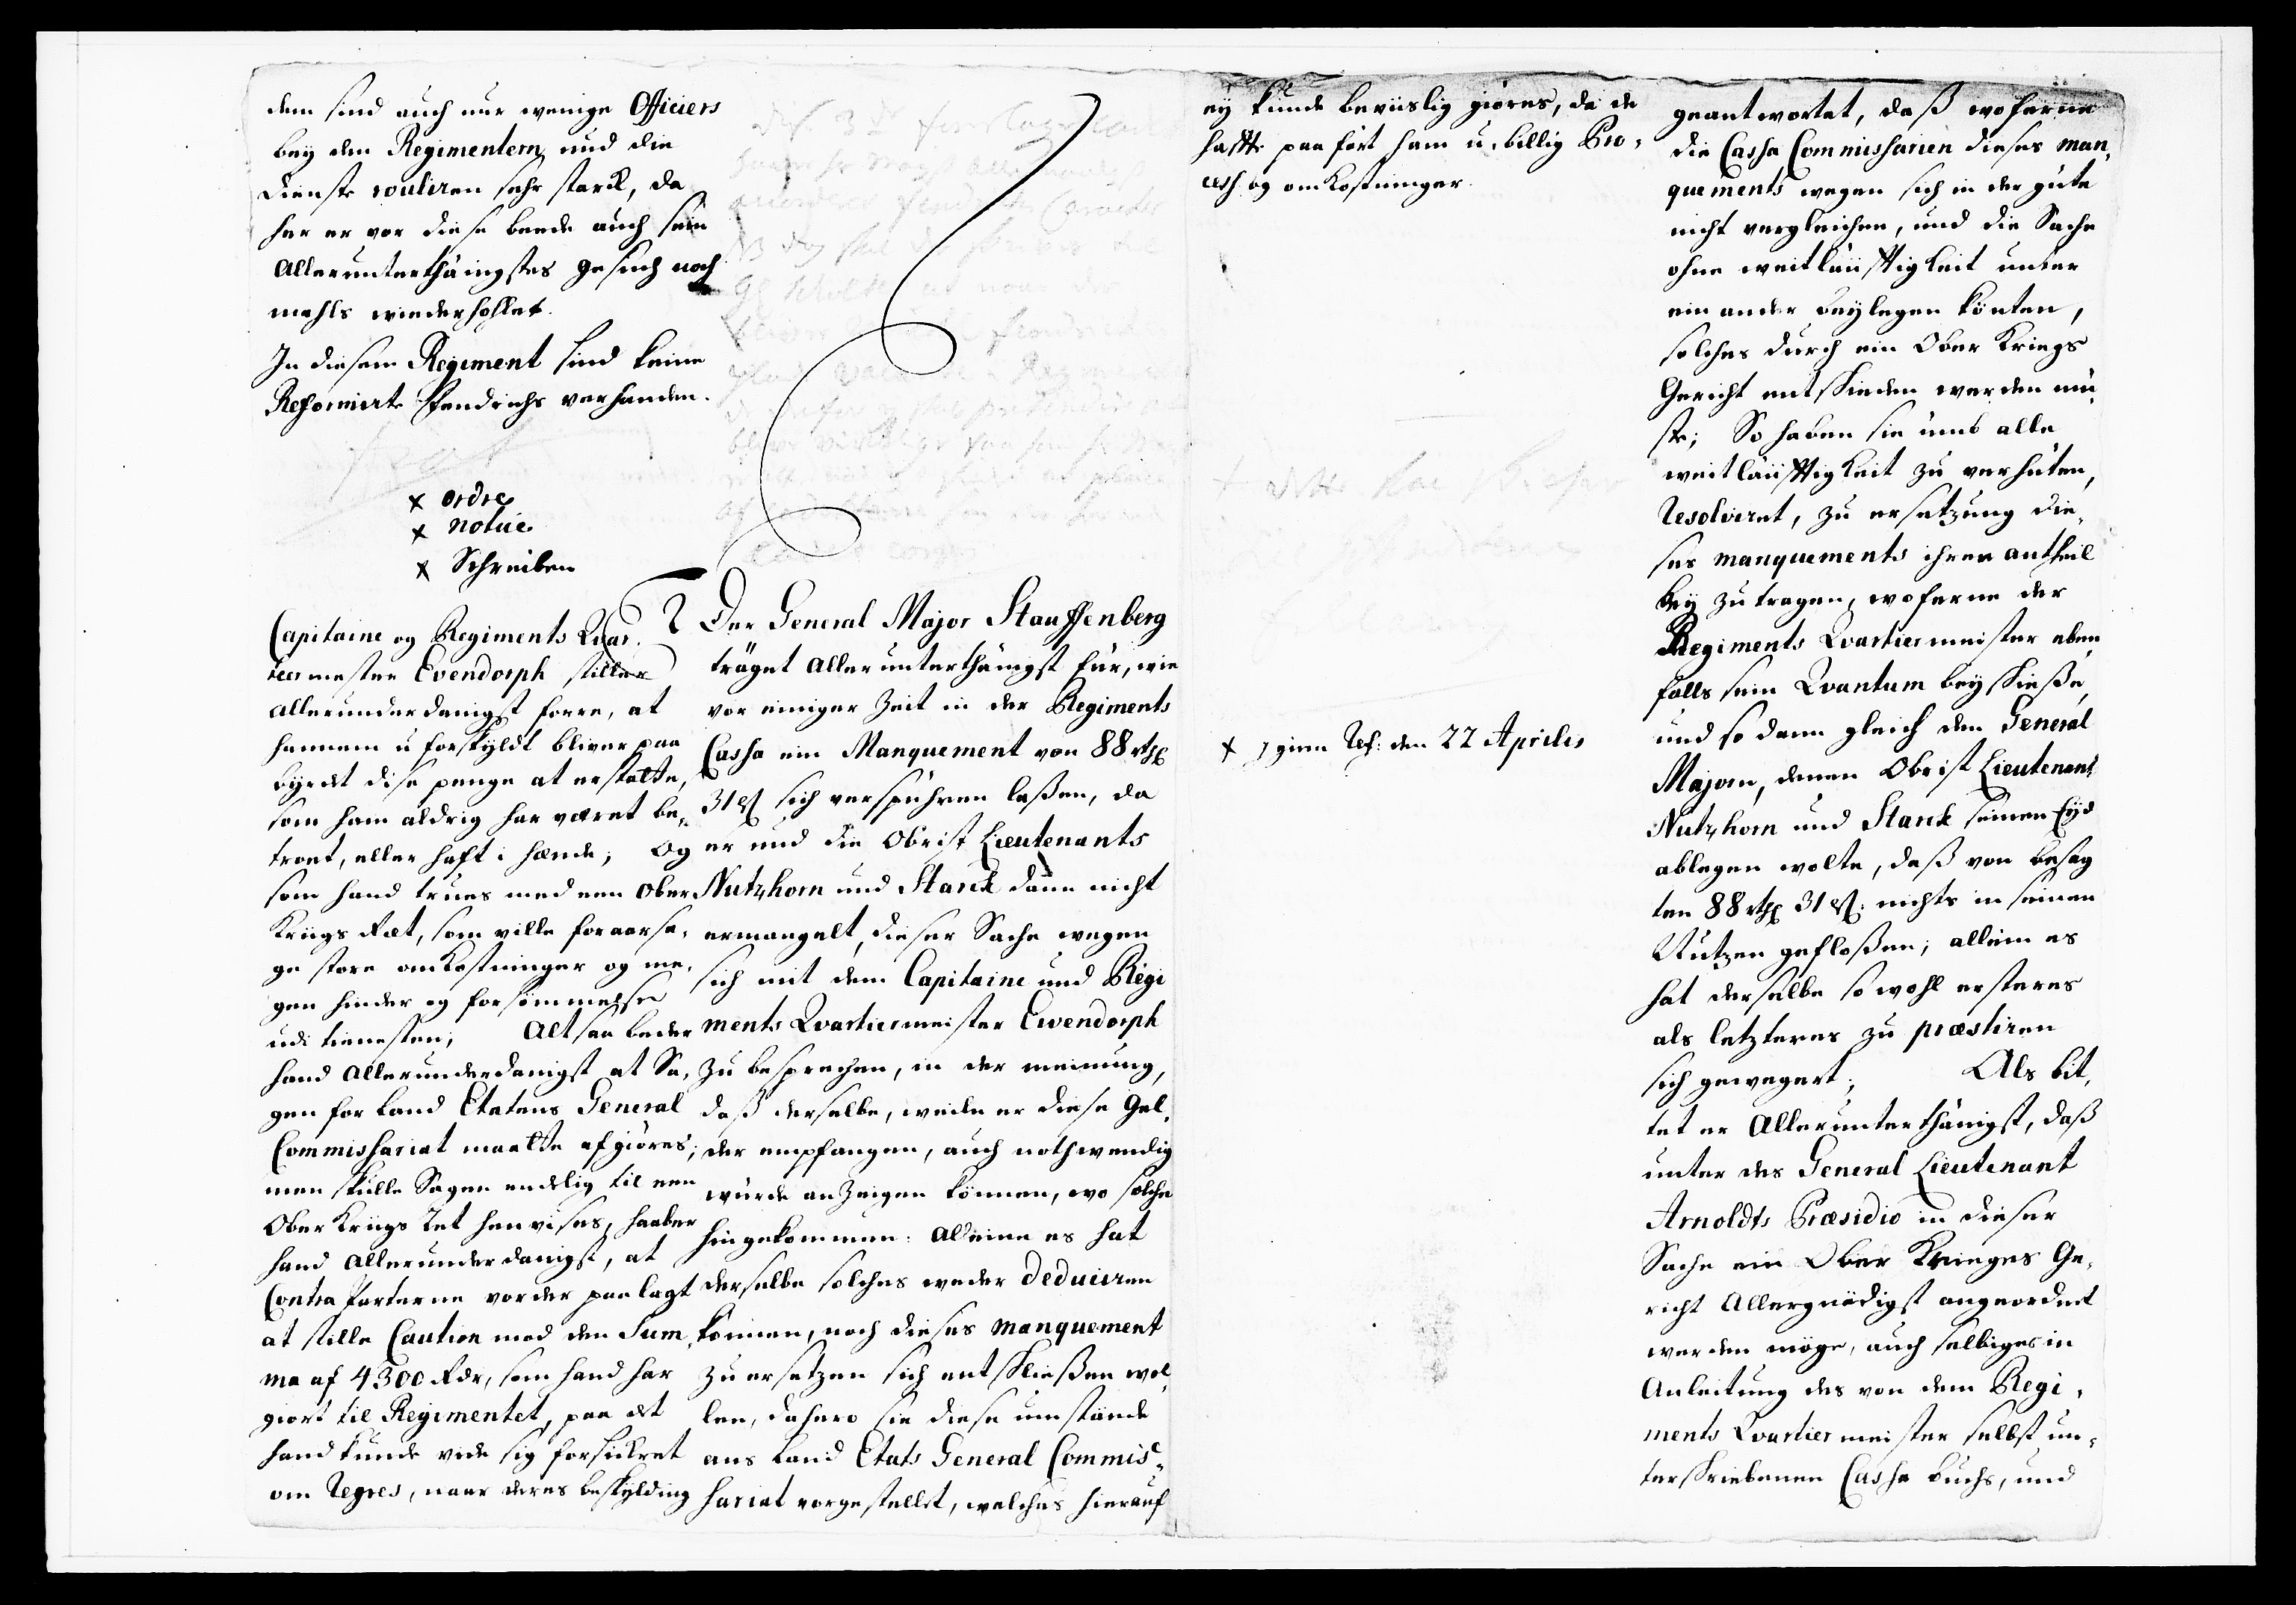 dem sind auch nur wenige Officiers
bey den Regimentern, und die
Dienste rouliren sehr starck, da
her er vor diese beede auch sein
Allerunterthänigstes gesuch noch
mahls wiederhohlet.
In diesem Regiment sind keine
Reformirte Fendrichs verhanden.
x ordre
x notice
x Schreiben
Capitaine og Regiments Quar¬
teermester Evendorph stiller
allerunderdanigst forre, at
hannem u forskyldt bliver paa
byrdet dise penge at erstatte,
som ham aldrig har været be¬
troet, eller haft i hænde; Og
som hand trues med een Ober
Kriigs Ræt, som ville foraarsa¬
ge store omkostninger og me¬
gen hinder og forsømmelse
udi tienesten; Altsaa beder
hand Allerunderdanigst at Sa¬
gen for Land Etatens General
Commissariat maatte afgiøres;
men skulle Sagen endelig til een
Ober Kriigs Ret henvises, haaber
hand Allerunderdanigst, at
Contra Parterne vorder paalagt
at stille Caution mod den Sum¬
ma af 4300 Rdr, som hand har
giort til Regimentet, paa det
hand kunde vide sig forsickret
om Regres, naar deres beskylding
Der General Major Stauffenberg
träget Allerunterthänigst für, wie
vor einiger Zeit in der Regiments
Cassa ein Manquement von 88 rthl
31 ß sich verspühren laßen, da
er und die Obrist Lieutenants
Nutzhorn und Starck dann nicht
ermangelt, dieser Sache wegen
sich mit dem Capitaine und Regi
ments Qvartiermeister Ewendorph
zu besprechen, in der meinung,
daß derselbe, weile er diese Gel¬
der empfangen, auch nothwendig
würde anzeigen können, wo solche
hingekommen: Alleine es hat
derselbe solches weder deduciren
können, noch dieses manquement
zu ersetzen sich entschließen wol¬
len, dahero sie diese umstände
ans Land Etats General Commis¬
sariat vorgestellet, welches hierauf
ey kunde beviislig giøres, da de
hafte paa ført ham u-billig Pro¬
cess og omkostninger.
x Ref: den 22 Aprilis
geantwortet, daß woferne
die Cassa Commissarien dieses man¬
quements wegen sich in der güte
nicht vergleichen, und die Sache
ohne weitläufftigkeit unter
ein ander beylegen könten,
solches durch ein Ober Kriegs
Gericht entschieden werden mü
ste; So haben sie umb alle
weitläufftigkeit zu verhüten,
Resolviret, zu ersetzung die¬
ses manquements ihren antheil
bey zutragen, woferne der
Regiments Qvartiermeister eben
falls sein Qvantum beyschieße,
und so dann gleich den General
Majorn, denen Obrist Lieutenant
Nutzhorn und Starck seinen Eyd
ablegen wolte, daß von besag
ten 88 rthl 31 ß: nichts in seinen
Nutzen gefloßen; allein es
hat derselbe so wohl ersteres
als letzteres zu præstiren
sich gewegert; Als bit¬
tet er Allerunterthänigst, daß
unter des General Lieutenant
Arnoldts Præsidio in dieser
Sache ein Ober Krieges Ge¬
richt Allergnädigst angeordnet
werden möge, auch selbiges in
Anleitung des von dem Regi¬
ments Qvartiermeister selbst un¬
terschriebenen Cassa buchs, und